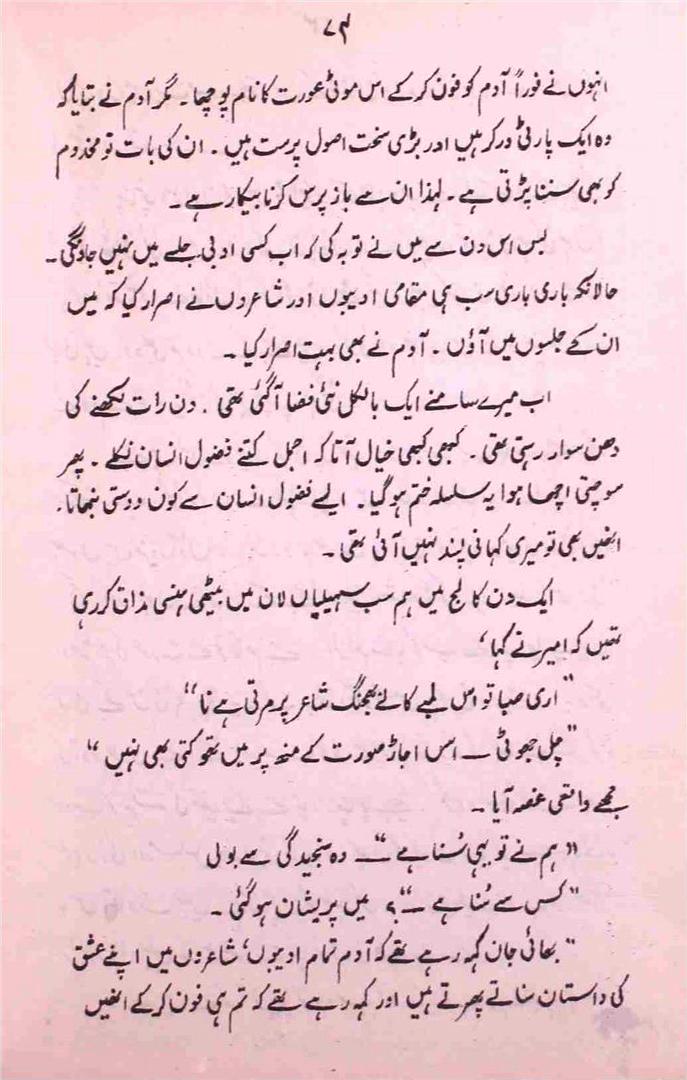 ۷۴
انہوں نے فوراً آدم کو فون کرکے اس موٹی عورت کا نام پوچھا۔ مگر آدم نے بتایا کہ
وہ ایک پارٹی ورکر ہیں اور بڑی سخت اصول پرست ہیں۔ ان کی بات تو مخدوم
کو بھی سننا پڑتی ہے۔ لہذا ان سے باز پرس کرنا بیکار ہے۔
بس اس دن سے میں نے توبہ کی کہ اب کسی ادبی جلسے میں نہیں جاؤنگی۔
حالانکہ باری باری سب ہی مقامی ادیبوں اور شاعروں نے اصرار کیا کہ میں
ان کے جلسوں میں آؤں۔ آدم نے بھی بہت اصرار کیا۔
اب میرے سامنے ایک بالکل نئی فضا آگئی تھی۔ دن رات لکھنے کی
دھن سوار رہتی تھی۔ کبھی کبھی خیال آتا کہ اجمل کتنے فضول انسان نکلے۔ پھر
سوچتی اچھا ہوا یہ سلسلہ ختم ہوگیا۔ ایسے فضول انسان سے کون دوستی نبھاتا۔
انھیں بھی تو میری کہانی پسند نہیں آئی تھی۔
ایک دن کالج میں ہم سب سہیلیاں لان میں بیٹھی ہنسی مذاق کر رہی
تھیں کہ امیر نے کہا،
”اری صبا تو اس لمبے کالے بھجنگ شاعر پر مرتی ہے نا“
”چل جھوٹی — اس اجاڑ صورت کے منھ پر میں تھوکتی بھی نہیں“
مجھے واقعی غصہ آیا۔
”ہم نے تو یہی سُنا ہے“ — وہ سنجیدگی سے بولی
”کس سے سُنا ہے —“؟ میں پریشان ہوگئی۔
”بھائی جان کہہ رہے تھے کہ آدم تمام ادیبوں، شاعروں میں اپنے عشق
کی داستان سناتے پھرتے ہیں اور کہہ رہے تھے کہ تم ہی فون کرکے انھیں